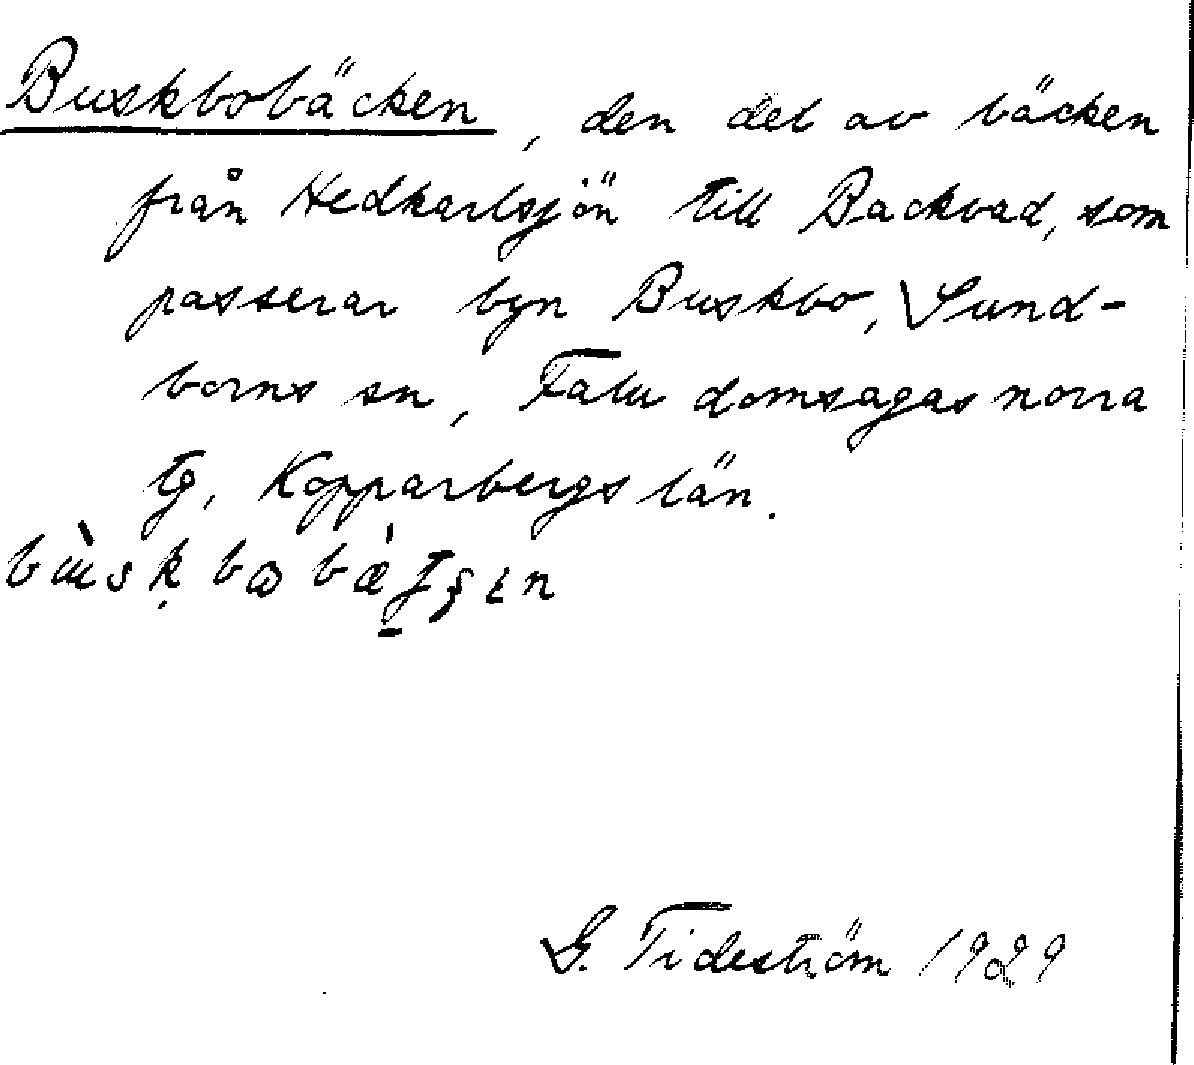 Buskbobäcken, den del av bäcken
från Hedkarlsjön till Backvad, som
passerar byn Buskbo, Sund-
borns sn, Falu domsagas norra
tg, Kopparbergs län.
G. Tideström 1929